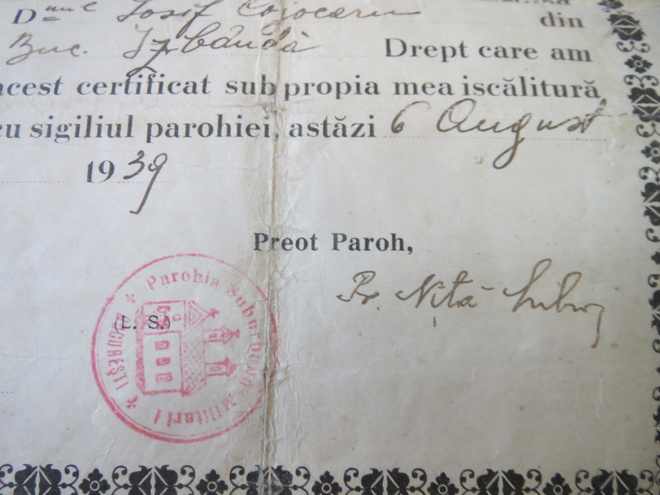 Dnul Iosif Cojocaru din
Buc. Drept care am
acest certificat sub propia mea iscălitură
cu sigiliul parohiei, astăzi 6 August
1939
Preot Paroh,
Pr. Niță
(L. S.)
Parohia Suburbană Militari I
BUCUREȘTI